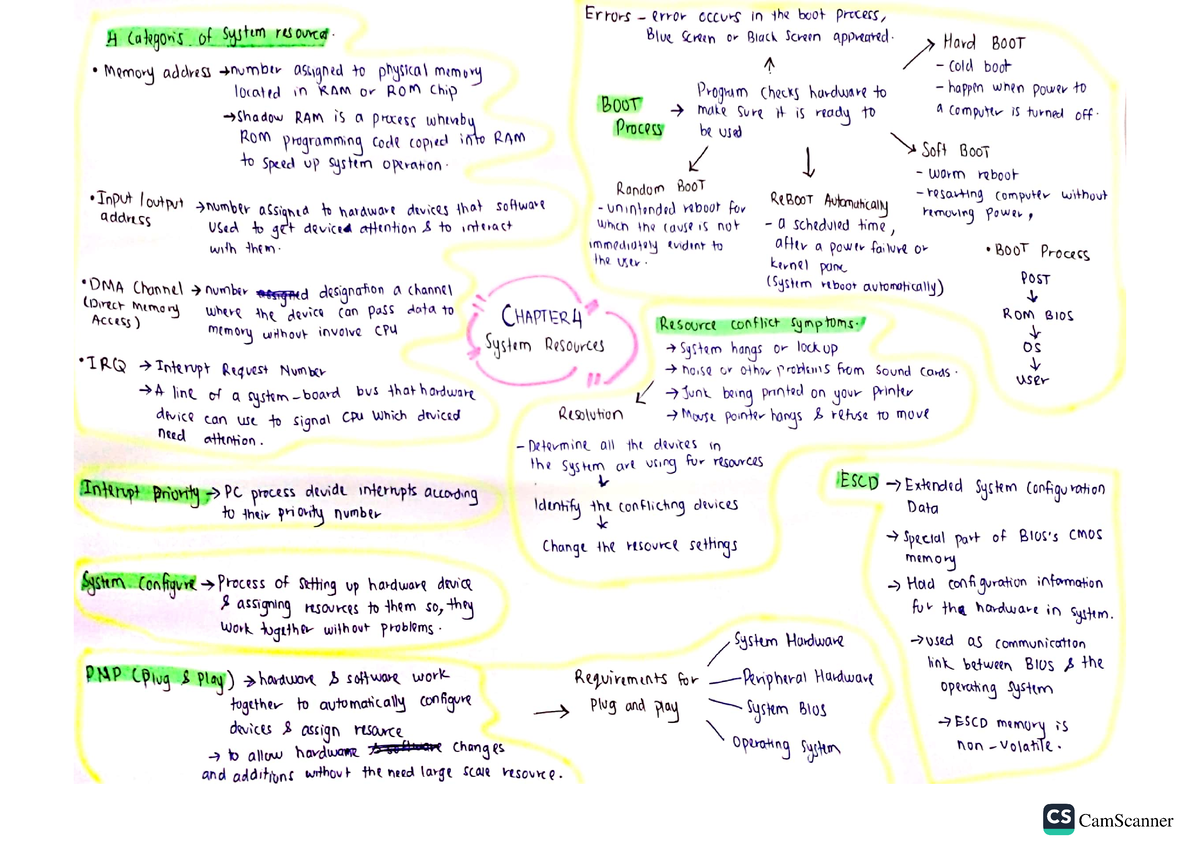 4 Categoris of System resource.
• Memory address → number assigned to physical memory
located in RAM or ROM chip
→ Shadow RAM is a process whereby
ROM programming code copied into RAM
to speed up system operation.
• Input / output → number assigned to hardware devices that software
address used to get deviced attention & to interact
with them.
• DMA Channel → number designation a channel
(Direct Memory where the device can pass data to
Access) memory without involve CPU
• IRQ → Interupt Request Number
→ A line of a system-board bus that hardware
device can use to signal CPU which deviced
need attention.
Interupt Priority → PC process devide interrupts according
to their priority number
System Configure → Process of setting up hardware device
& assigning resources to them so, they
work together without problems.
PNP (Plug & Play) → hardware & software work
together to automatically configure
devices & assign resource
→ to allow hardware changes
and additions without the need large scale resource.
→ Requirements for
Plug and play
System Hardware
Peripheral Hardware
System BIOS
Operating System
CHAPTER 4
System Resources
Errors – error occurs in the boot process,
Blue Screen or Black Screen appreared.
BOOT
Process
→ Program checks hardware to
make sure it is ready to
be used
Hard BOOT
- cold boot
- happen when power to
a computer is turned off.
Soft BOOT
- warm reboot
- resarting computer without
removing power,
Random BOOT
- unintended reboot for
which the cause is not
immediately evident to
the user.
ReBOOT Automatically
- a scheduled time,
after a power failure or
kernel panc
(System reboot automatically)
• BOOT Process
POST
↓
ROM BIOS
↓
OS
↓
user
Resource conflict symptoms.
→ System hangs or lock up
→ noise or other problems from sound cards.
→ Junk being printed on your printer
→ Mouse pointer hangs & refuse to move
Resolution
- Determine all the devices in
the system are using for resources
↓
Identify the conflicting devices
↓
Change the resource settings
ESCD → Extended System Configuration
Data
→ Special part of BIOS's CMOS
memory
→ Hold configuration information
for the hardware in system.
→ used as communication
link between BIOS & the
operating system
→ ESCD memory is
non-volatile.
CS CamScanner